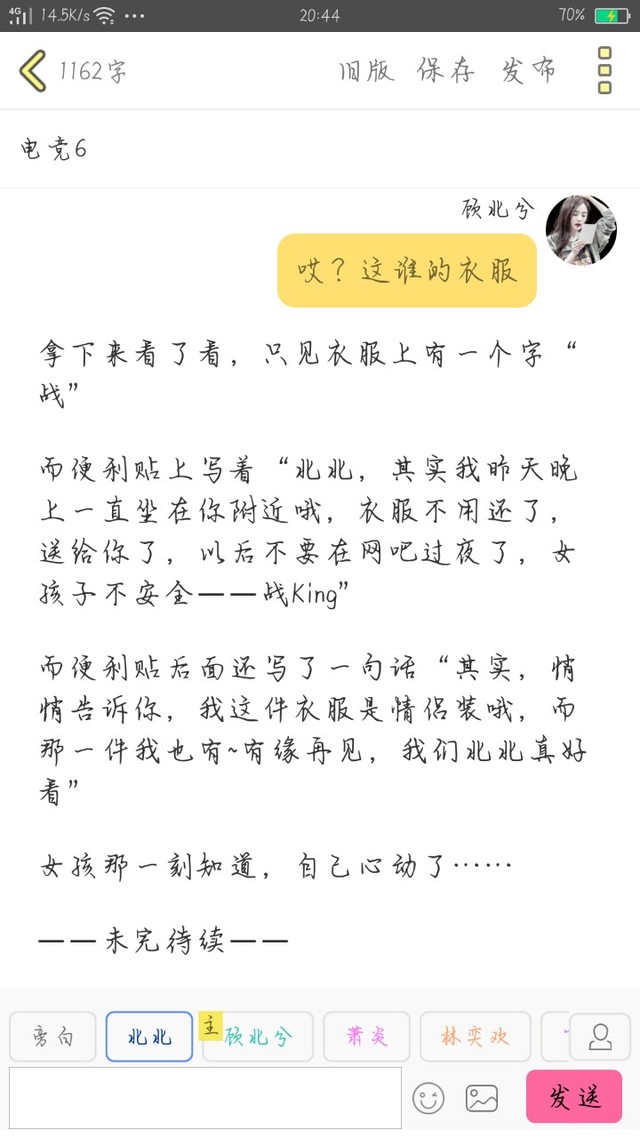 4G 14.5K/s 20:44 70%
1162字 旧版 保存 发布
电竞6
顾北兮
哎？这谁的衣服
拿下来看了看，只见衣服上有一个字“
战”
而便利贴上写着“北北，其实我昨天晚
上一直坐在你附近哦，衣服不用还了，
送给你了，以后不要在网吧过夜了，女
孩子不安全——战King”
而便利贴后面还写了一句话“其实，悄
悄告诉你，我这件衣服是情侣装哦，而
那一件我也有~有缘再见，我们北北真好
看”
女孩那一刻知道，自己心动了……
——未完待续——
旁白 北北 主 顾北兮 萧炎 林奕欢
发送